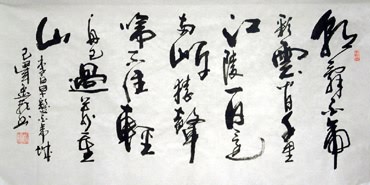 朝辭白帝
彩雲间千里
江陵一日還
兩岸猿聲
啼不住輕
舟已過萬重
山
李白早發白帝城